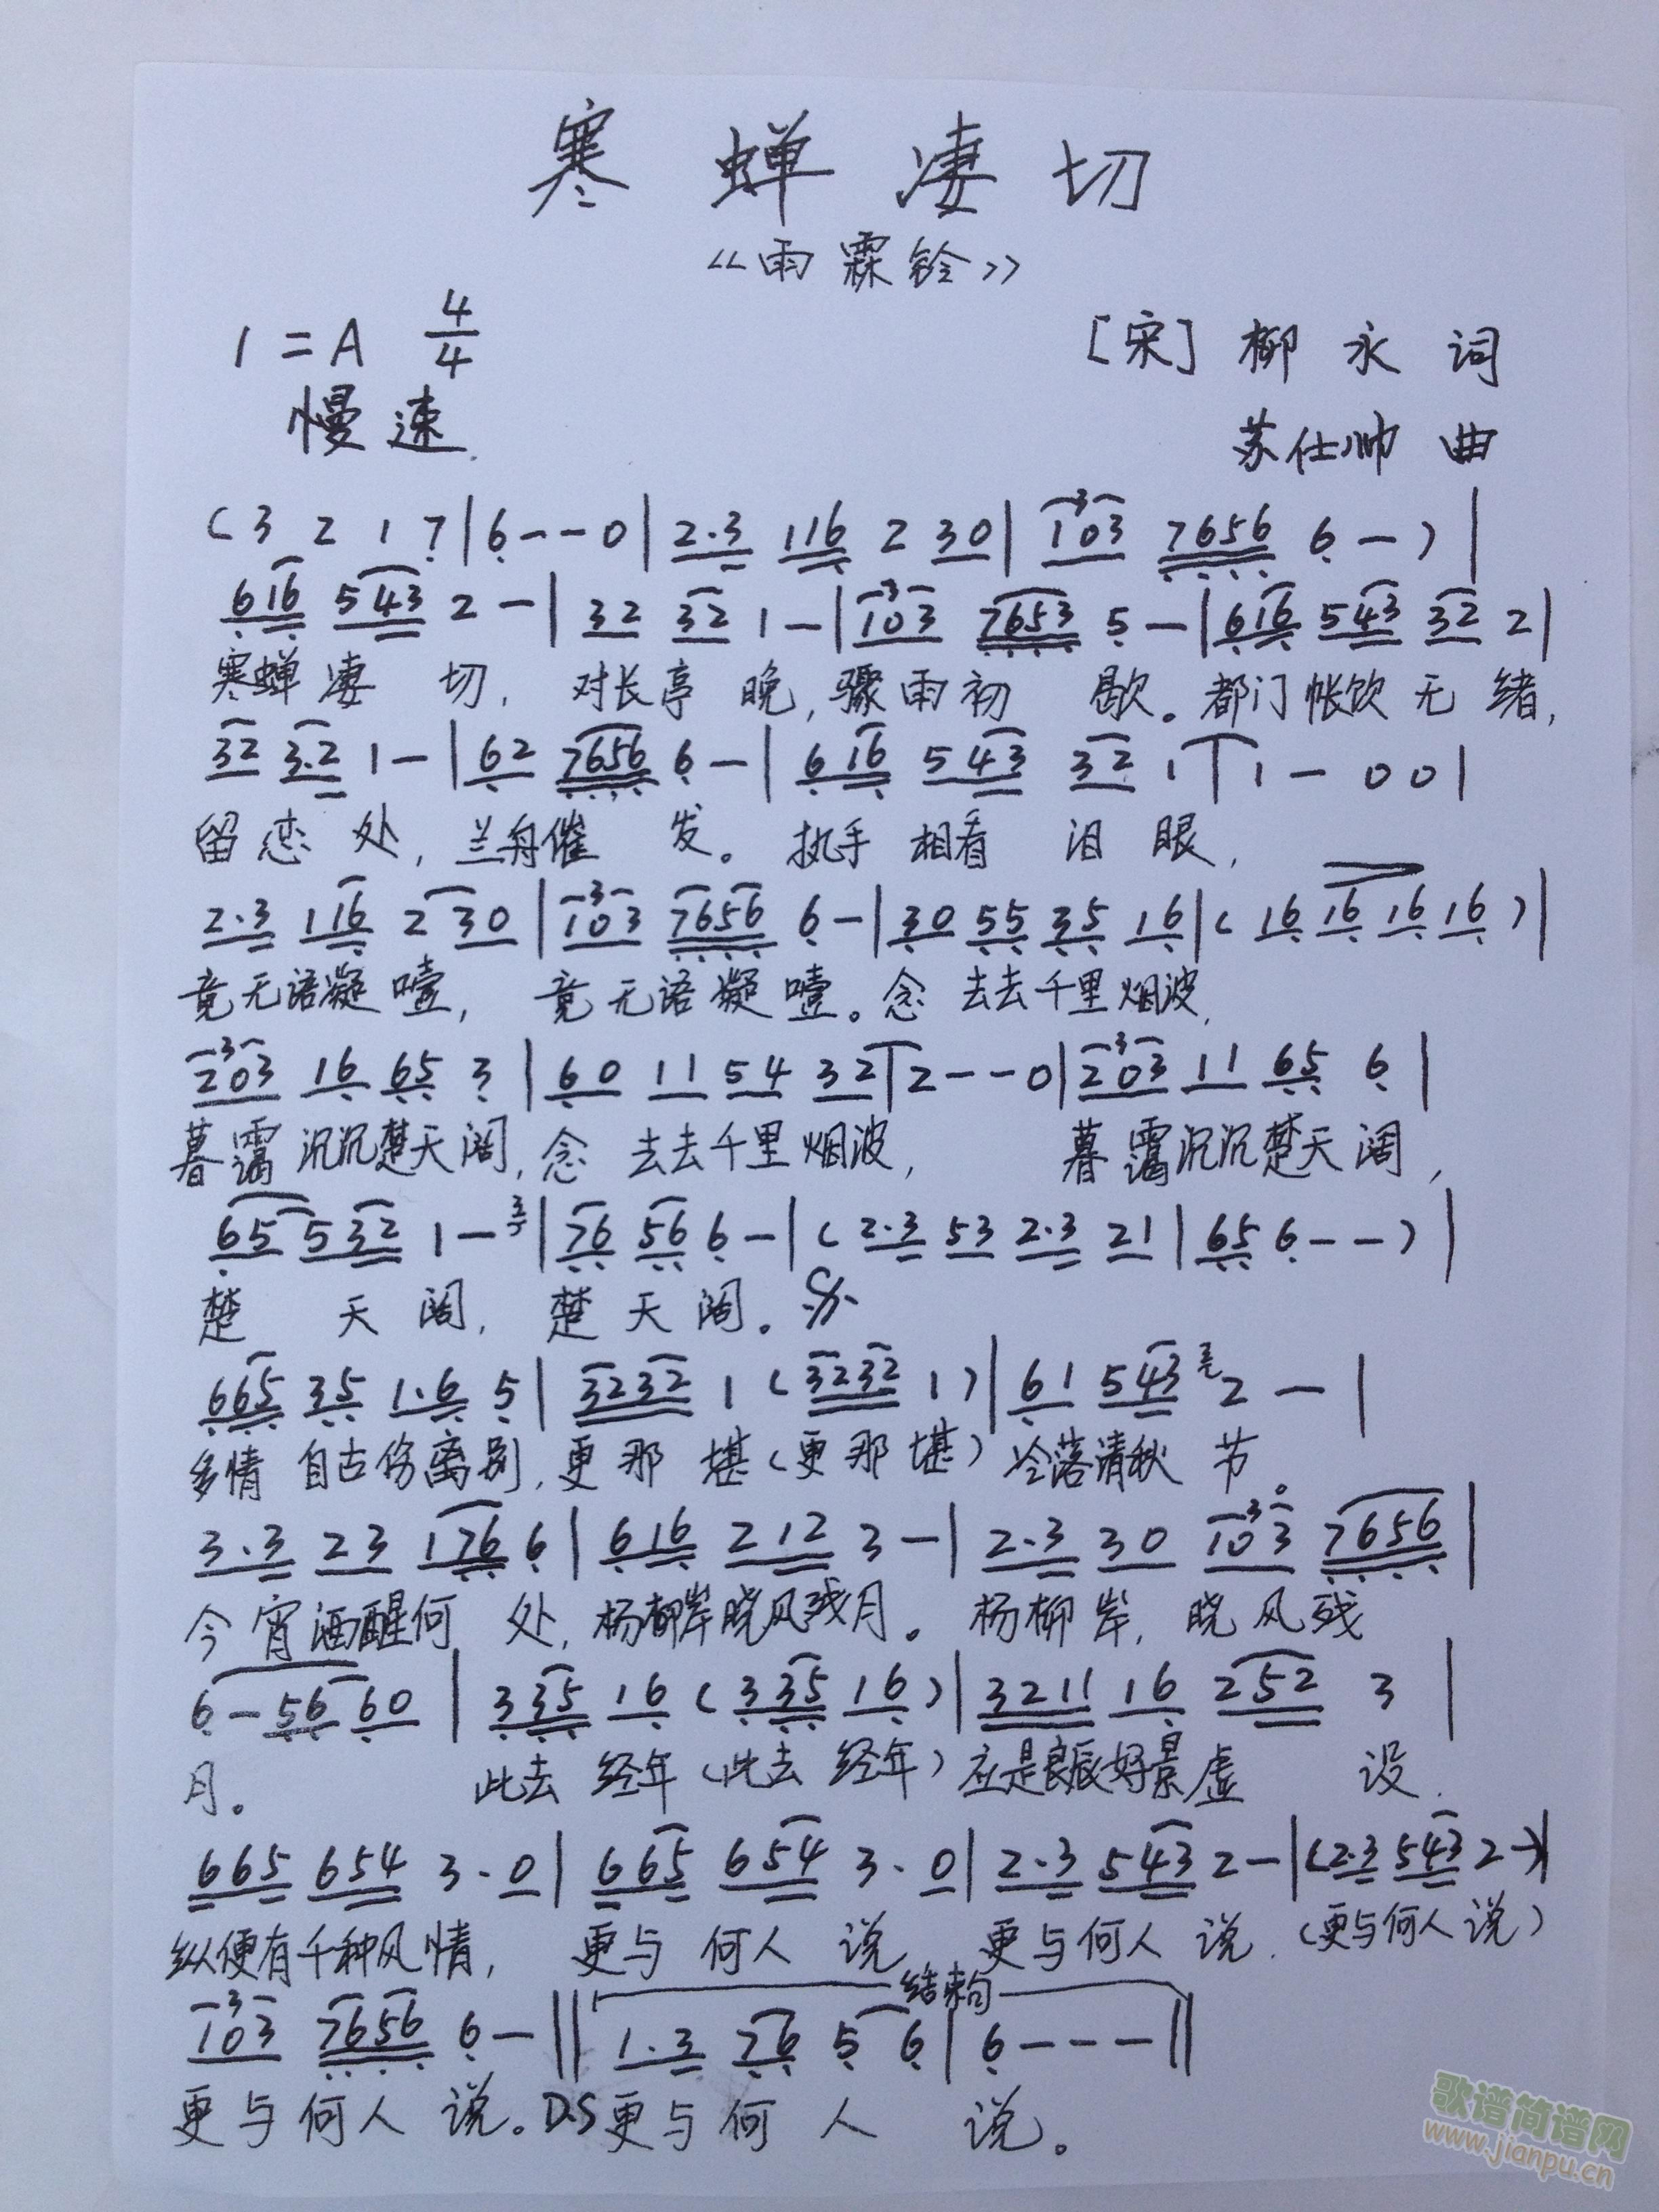 寒蝉凄切
《雨霖铃》
1=A 4/4
[宋] 柳永 词
慢速
苏仕帅 曲
(3 2 1 7|6--0|2·3 116 2 30|103 7656 6-)|
616 543 2-|32 32 1-|103 7653 5-|616 543 32 2|
寒蝉凄切,对长亭晚,骤雨初歇。都门帐饮无绪,
32 3·2 1-|62 7656 6-|6 16 5 43 32 1|1-00|
留恋处,兰舟催发。执手相看泪眼,
2·3 116 2 30|103 7656 6-|30 55 35 16|(16 16 16 16)|
竟无语凝噎,竟无语凝噎。念去去千里烟波,
203 16 65 3|60 11 54 32|2--0|203 11 65 6|
暮霭沉沉楚天阔,念去去千里烟波,暮霭沉沉楚天阔,
65 532 1-3|76 56 6-|(2·3 53 2·3 21|65 6--)|
楚天阔,楚天阔。
665 35 1·6 5|3232 1(3232 1)|61 543 2-|
多情自古伤离别,更那堪(更那堪)冷落清秋节。
3·3 23 176 6|616 212 3-|2·3 30 103 7656|
今宵酒醒何处,杨柳岸晓风残月。杨柳岸,晓风残
6-56 60|335 16(335 16)|3211 16 252 3|
月。此去经年(此去经年)应是良辰好景虚设.
665 654 3·0|665 654 3·0|2·3 543 2-|(2·3 543 2-)|
纵便有千种风情,更与何人说 更与何人说.(更与何人说)
结束句
103 7656 6-||1·3 76 5 6|6---||
更与何人说。D.S更与何人说。
歌谱简谱网
www.jianpu.cn